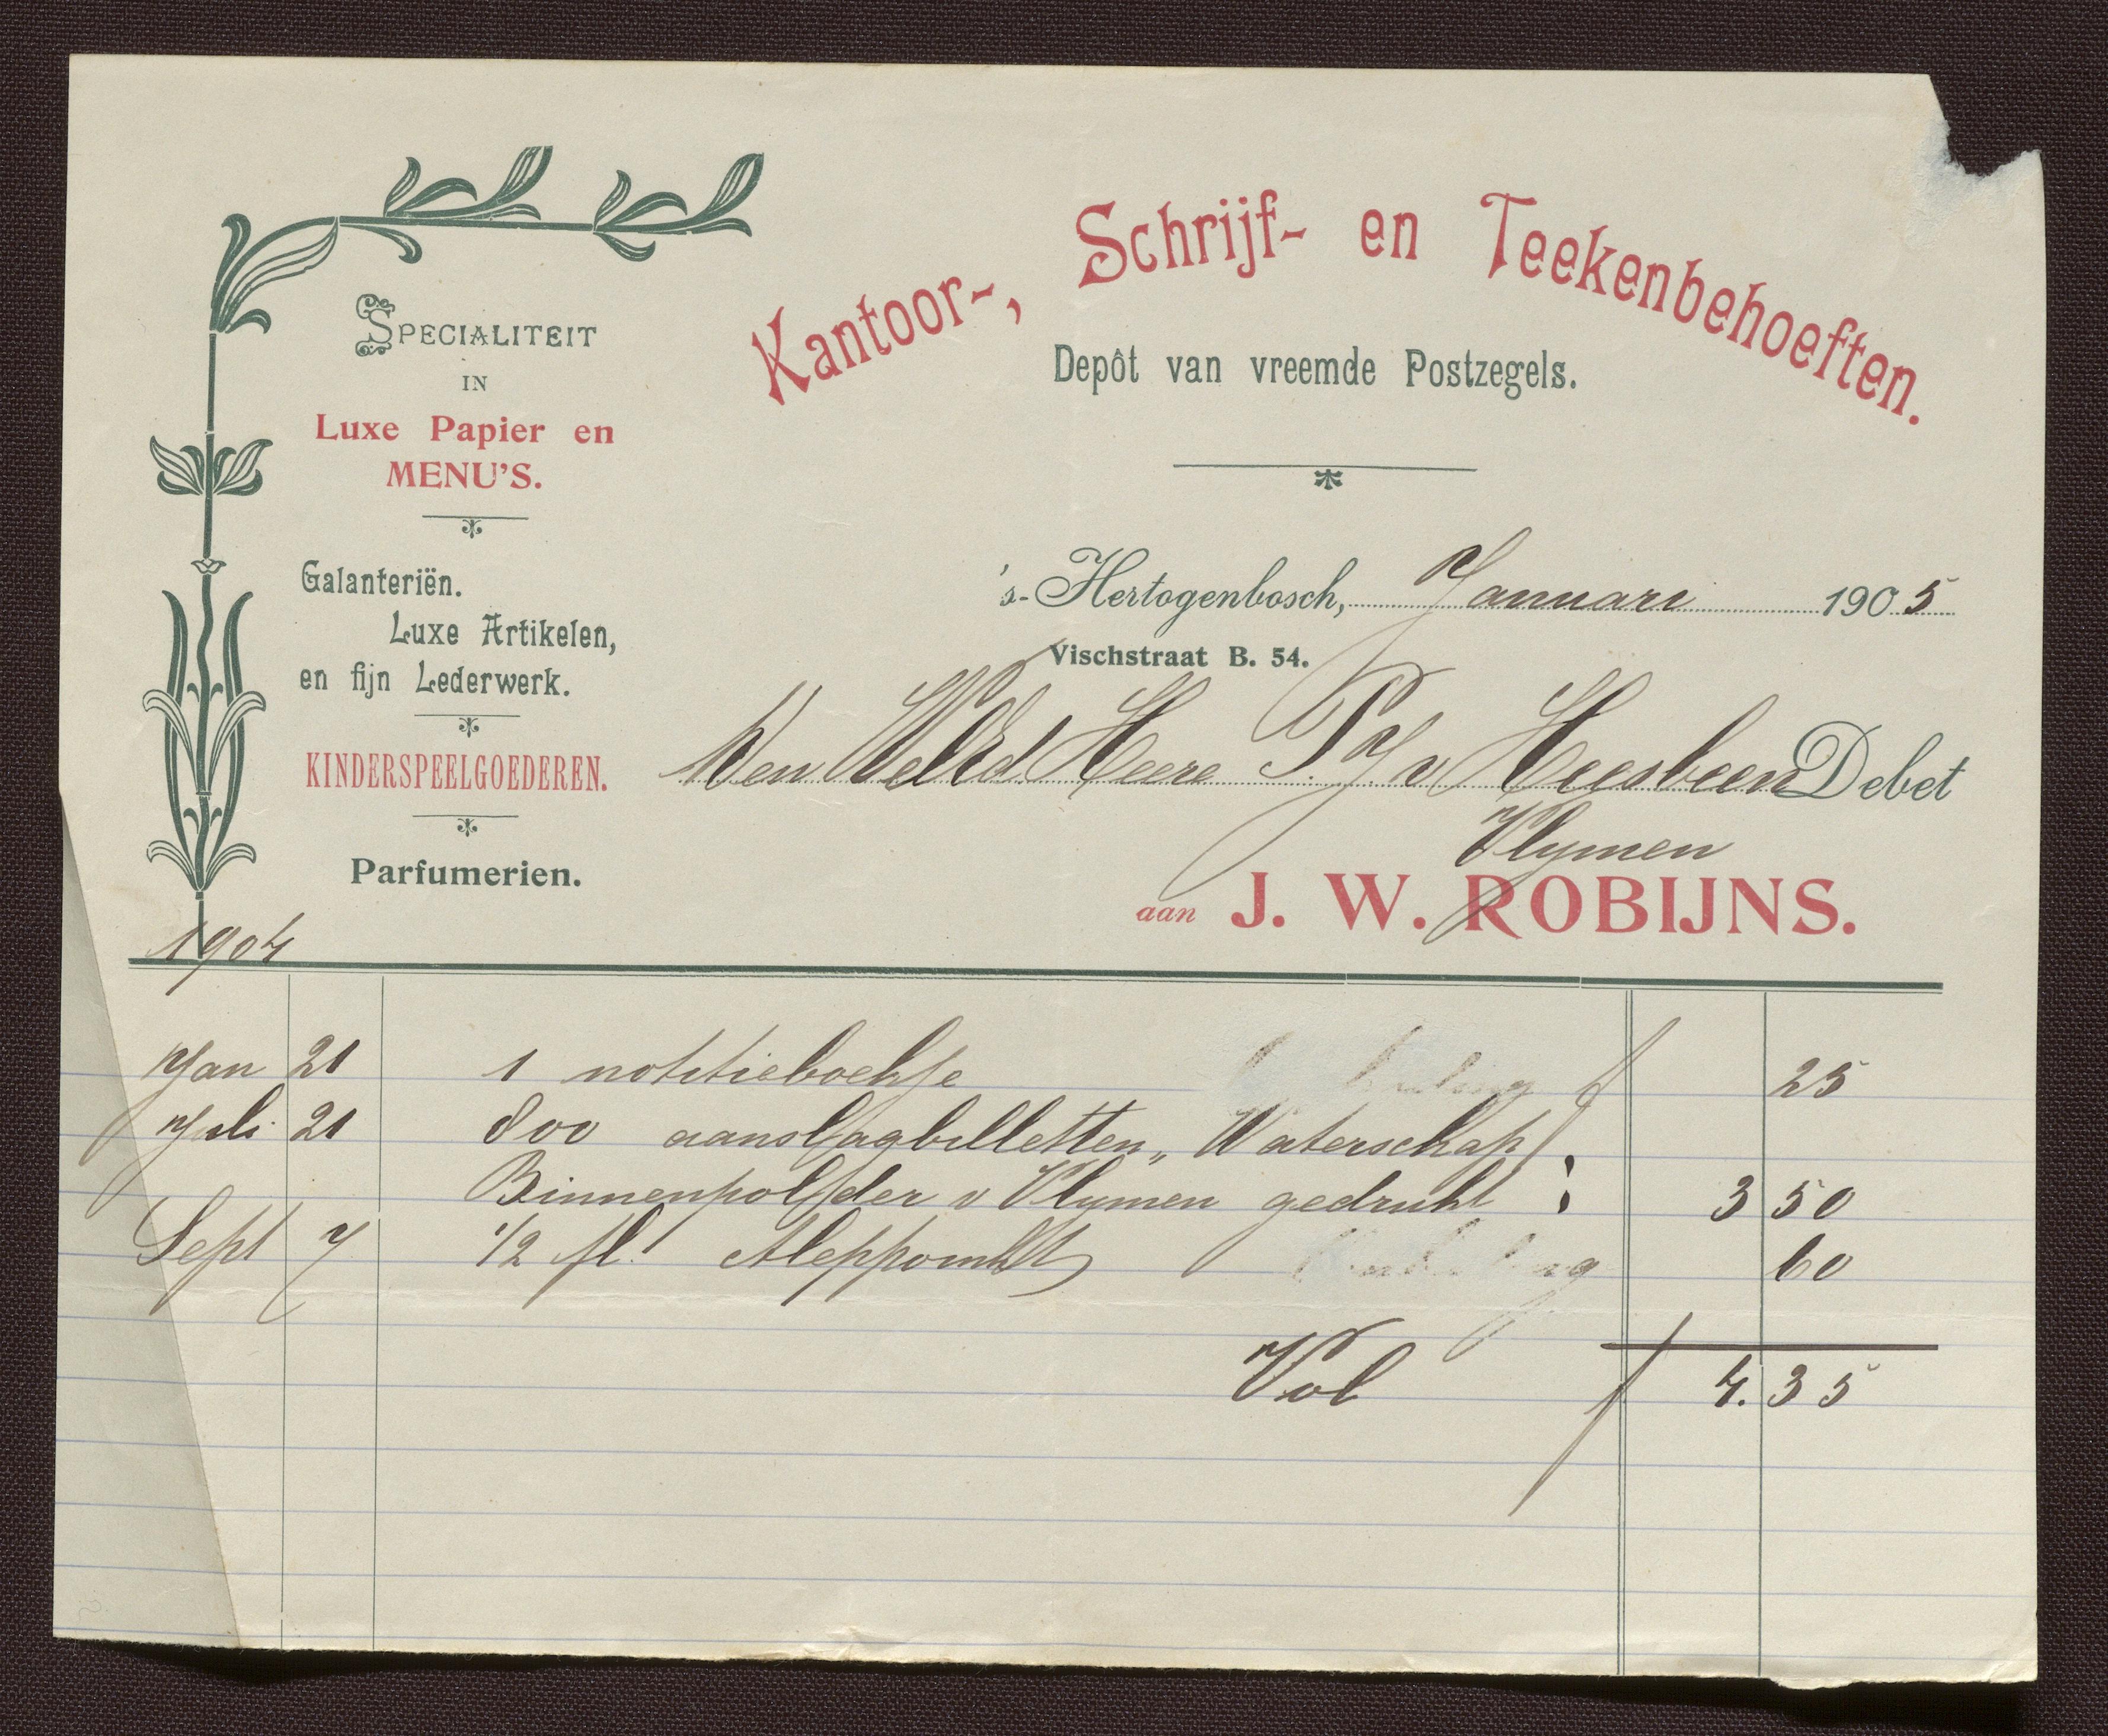 Kantoor-, Schrijf- en Teekenbehoeften.
Depôt van vreemde Postzegels.
SPECIALITEIT
IN
Luxe Papier en
MENU'S.
Galanteriën.
Luxe Artikelen,
en fijn Lederwerk.
KINDERSPEELGOEDEREN.
Parfumerien.
's-Hertogenbosch, Januari 1905
Vischstraat B. 54.
Den WelEd Heere P. J. v Heesbeen Debet
Vlymen
aan J. W. ROBIJNS.
1904
Jan 21 1 notitieboekje f 25
Juli 21 800 aanslagbilletten, Waterschap
Binnenpolder v Vlymen gedrukt 3 50
Sept 7 1/2 fl. Aleppoinkt 60
Vol f 4.35